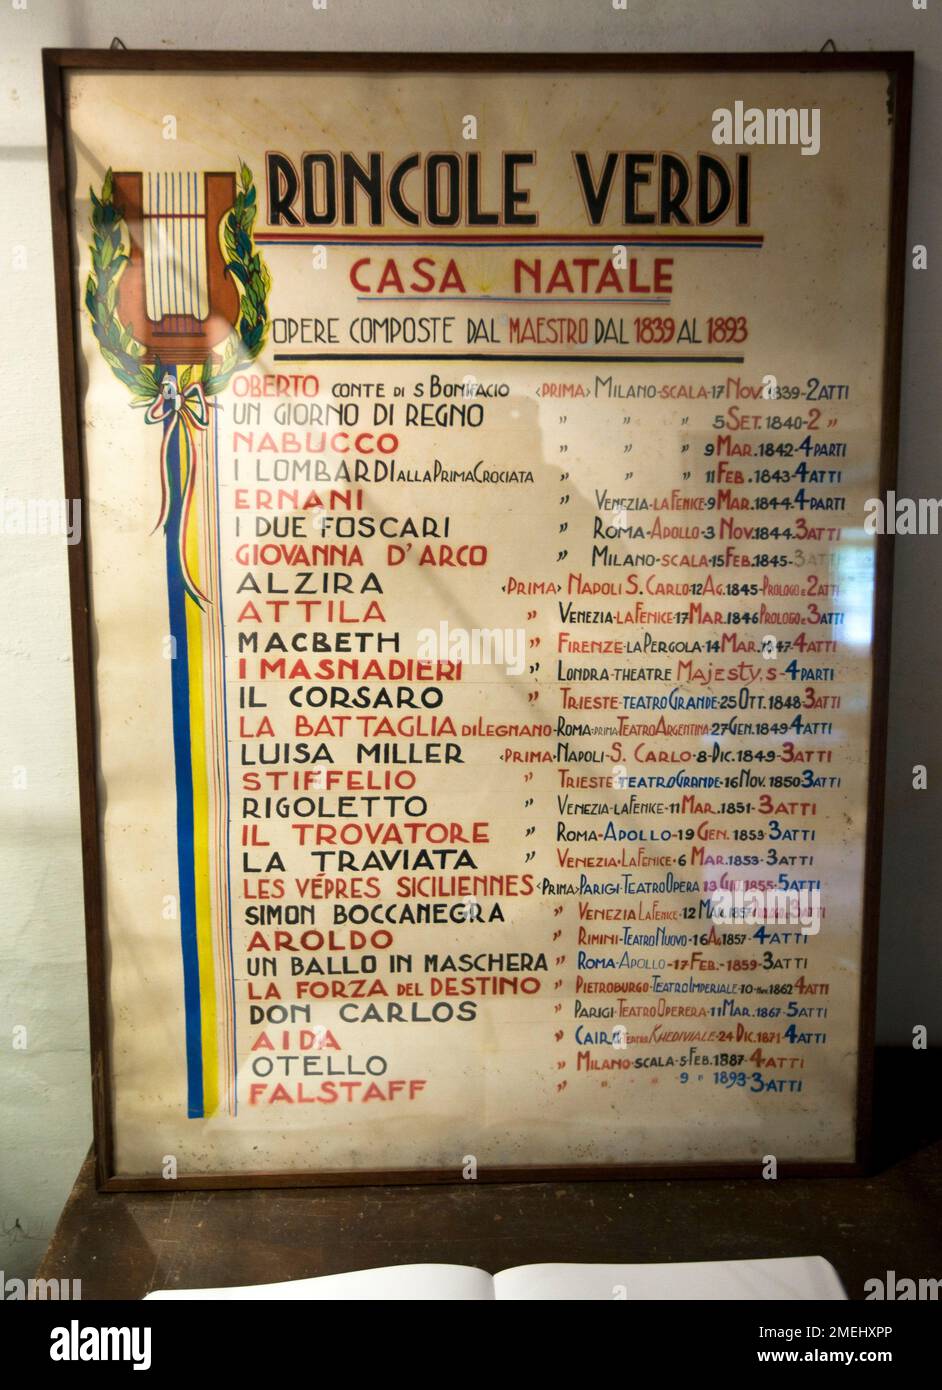 RONCOLE VERDI
CASA NATALE
OPERE COMPOSTE DAL MAESTRO DAL 1839 AL 1893
OBERTO CONTE DI S BONIFACIO <PRIMA> MILANO-SCALA-17 NOV. 1839-2 ATTI
UN GIORNO DI REGNO " " " 5 SET. 1840-2 "
NABUCCO " " " 9 MAR. 1842-4 PARTI
I LOMBARDI ALLA PRIMA CROCIATA " " " 11 FEB. 1843-4 ATTI
ERNANI " VENEZIA-LA FENICE-9 MAR. 1844-4 PARTI
I DUE FOSCARI " ROMA-APOLLO-3 NOV. 1844-3 ATTI
GIOVANNA D'ARCO " MILANO-SCALA-15 FEB. 1845-3 ATTI
ALZIRA <PRIMA> NAPOLI S. CARLO-12 AG. 1845-PROLOGO E 2 ATTI
ATTILA " VENEZIA-LA FENICE-17 MAR. 1846 PROLOGO E 3 ATTI
MACBETH " FIRENZE-LA PERGOLA-14 MAR. 1847-4 ATTI
I MASNADIERI " LONDRA-THEATRE MAJESTY,S-4 PARTI
IL CORSARO " TRIESTE-TEATRO GRANDE-25 OTT. 1848-3 ATTI
LA BATTAGLIA DI LEGNANO-ROMA-PRIMA TEATRO ARGENTINA-27 GEN. 1849 4 ATTI
LUISA MILLER <PRIMA-NAPOLI-S. CARLO-8-DIC. 1849-3 ATTI
STIFFELIO " TRIESTE-TEATRO GRANDE-16 NOV. 1850-3 ATTI
RIGOLETTO " VENEZIA-LA FENICE-11 MAR. 1851-3 ATTI
IL TROVATORE " ROMA-APOLLO-19 GEN. 1853-3 ATTI
LA TRAVIATA " VENEZIA-LA FENICE-6 MAR. 1853-3 ATTI
LES VÉPRES SICILIENNES <PRIMA> PARIGI-TEATRO OPERA 13 GIU 1855-5 ATTI
SIMON BOCCANEGRA " VENEZIA LA FENICE-12 MAR. 1857 PROLOGO E 3 ATTI
AROLDO " RIMINI-TEATRO NUOVO-16 AG. 1857-4 ATTI
UN BALLO IN MASCHERA " ROMA-APOLLO-17-FEB.-1859-3 ATTI
LA FORZA DEL DESTINO " PIETROBURGO-TEATRO IMPERIALE-10- 1862 4 ATTI
DON CARLOS " PARIGI TEATRO OPERERA-11 MAR. 1867-5 ATTI
AIDA " CAIRO TEATRO KHEDIVIALE-24 DIC. 1871-4 ATTI
OTELLO " MILANO-SCALA-5 FEB. 1887-4 ATTI
FALSTAFF " " " 9 " 1893-3 ATTI
alamy
Image ID: 2MEHXPP
www.alamy.com